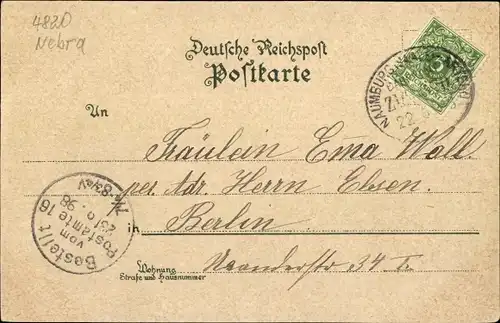 4820
Nebra
Deutsche Reichspost
Postkarte
NAUMBURG
ZUG
22
An
Fräulein Ema Woll.
per. Adr. Herrn Ebsen.
in Berlin
Wohnung
Strafse und Hausnummer
34 I.
Bestellt
vom
Postamte 16
23/6.98